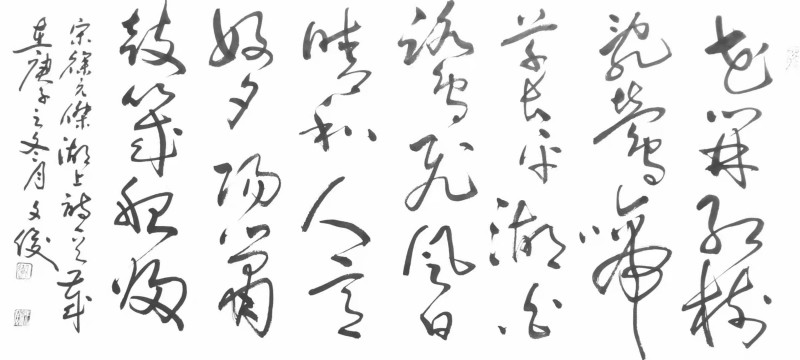 花開紅樹
亂鶯啼
草長平湖白
鷺飛風日
晴和人意
好夕陽簫
鼓幾船歸
宋徐元傑湖上詩一首歲
在庚子之冬月文俊